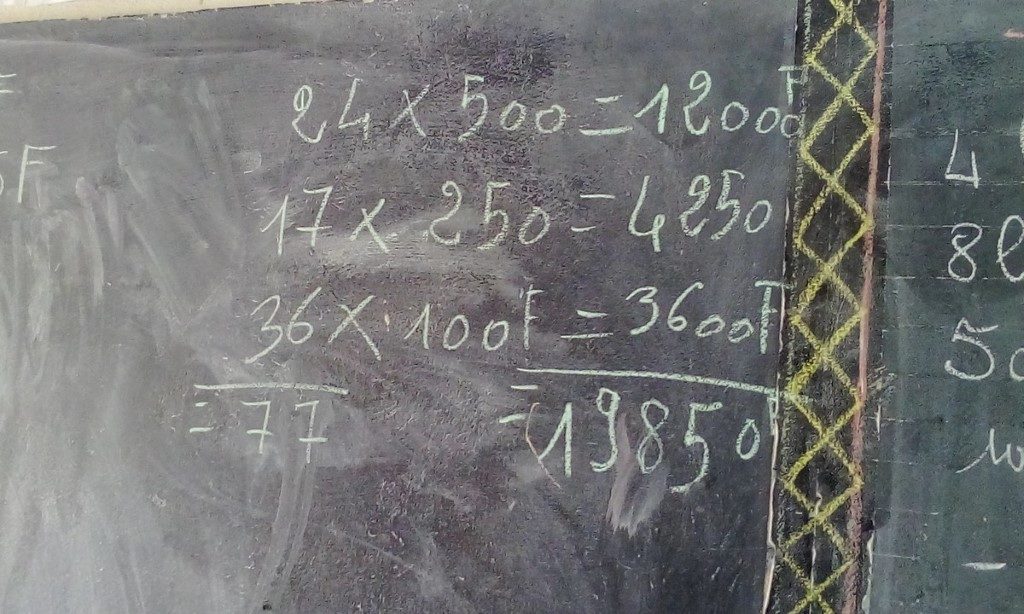 24 × 500 = 12000F
17 × 250 = 4250
36 × 100F = 3600F
= 77 = 19850F
5F
4
8l
50